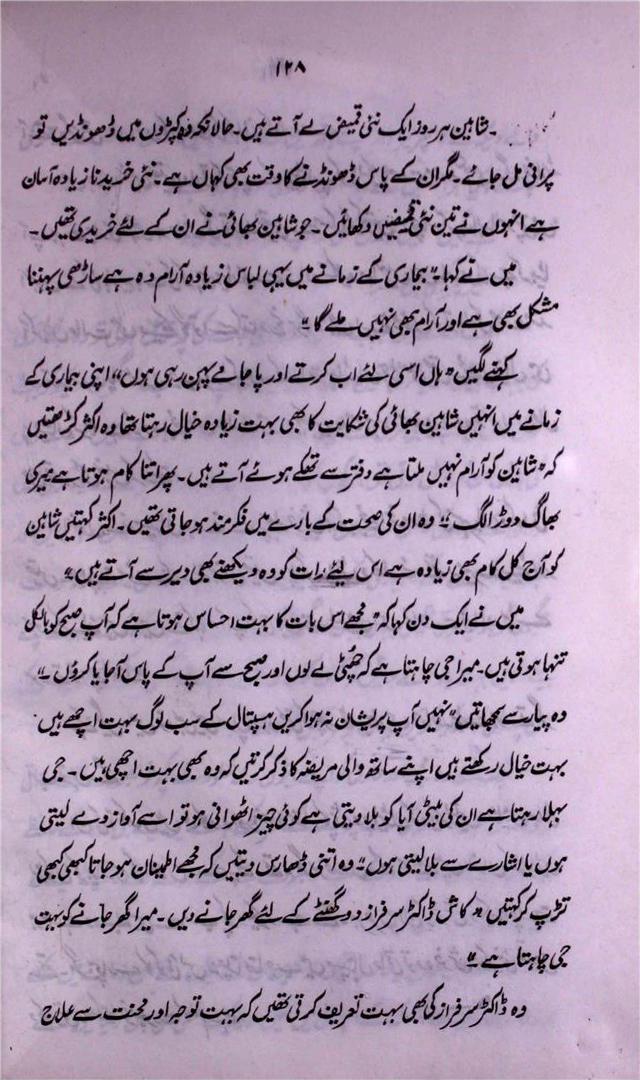 ۱۲۸
۔ شاہین ہر روز ایک نئی قمیض لے آتے ہیں۔ حالانکہ وہ کپڑوں میں ڈھونڈیں تو
پرانی مل جائے۔ مگر ان کے پاس ڈھونڈنے کا وقت بھی کہاں ہے۔ نئی خریدنا زیادہ آسان
ہے انہوں نے تین نئی قمیضیں دکھائیں۔ جو شاہین بھائی نے ان کے لئے خریدی تھیں۔
میں نے کہا۔ "بیماری کے زمانے میں یہی لباس زیادہ آرام دہ ہے ساڑھی پہننا
مشکل بھی ہے اور آرام بھی نہیں ملے گا"
کہنے لگیں "ہاں اسی لئے اب کرتے اور پاجامے پہن رہی ہوں" اپنی بیماری کے
زمانے میں انہیں شاہین بھائی کی شکایت کا بھی بہت زیادہ خیال رہتا تھا وہ اکثر کڑھتیں
کہ "شاہین کو آرام نہیں ملتا ہے دفتر سے تھکے ہوئے آتے ہیں۔ پھر اتنا کام ہوتا ہے میری
بھاگ دوڑ الگ" وہ ان کی صحت کے بارے میں فکرمند ہو جاتی تھیں۔ اکثر کہتیں شاہین
کو آج کل کام بھی زیادہ ہے اس لئے رات کو وہ دیکھنے بھی دیر سے آتے ہیں"
میں نے ایک دن کہا کہ "مجھے اس بات کا بہت احساس ہوتا ہے کہ آپ صبح کو بالکل
تنہا ہوتی ہیں۔ میرا جی چاہتا ہے کہ چھٹی لے لوں اور صبح سے آپ کے پاس آجایا کروں۔"
وہ پیار سے سمجھاتیں "نہیں آپ پریشان نہ ہوا کریں ہسپتال کے سب لوگ بہت اچھے ہیں
بہت خیال رکھتے ہیں اپنے ساتھ والی مریضہ کا ذکر کرتیں کہ وہ بھی بہت اچھی ہیں۔ جی
بہلا رہتا ہے ان کی بیٹی آیا کو بلا دیتی ہے کوئی چیز اٹھوانی ہو تو اسے آواز دے لیتی
ہوں یا اشارے سے بلا لیتی ہوں" وہ اتنی ڈھارس دیتیں کہ مجھے اطمینان ہو جاتا کبھی کبھی
تڑپ کر کہتیں "کاش ڈاکٹر سرفراز دو گھنٹے کے لئے گھر جانے دیں۔ میرا گھر جانے کو بہت
جی چاہتا ہے"
وہ ڈاکٹر سرفراز کی بھی بہت تعریف کرتی تھیں کہ بہت توجہ اور محنت سے علاج